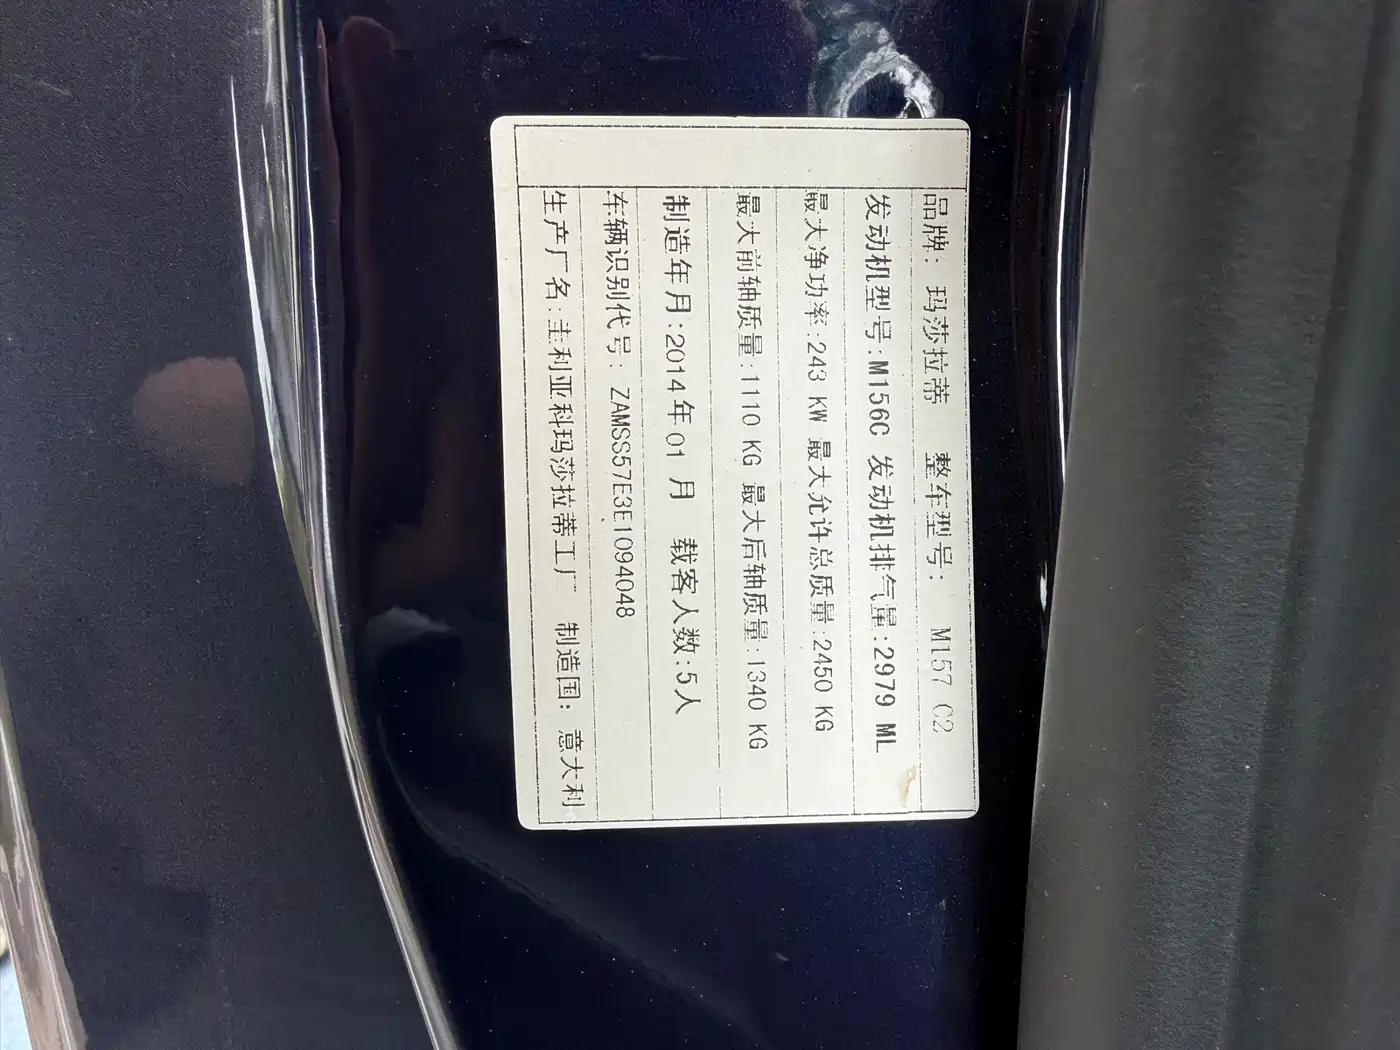 品牌: 玛莎拉蒂 整车型号: M157 C2
发动机型号:M156C 发动机排气量:2979 ML
最大净功率:243 KW 最大允许总质量:2450 KG
最大前轴质量:1110 KG 最大后轴质量:1340 KG
制造年月:2014年01月 载客人数:5人
车辆识别代号: ZAMSS57E3E1094048
生产厂名:圭利亚科玛莎拉蒂工厂 制造国: 意大利